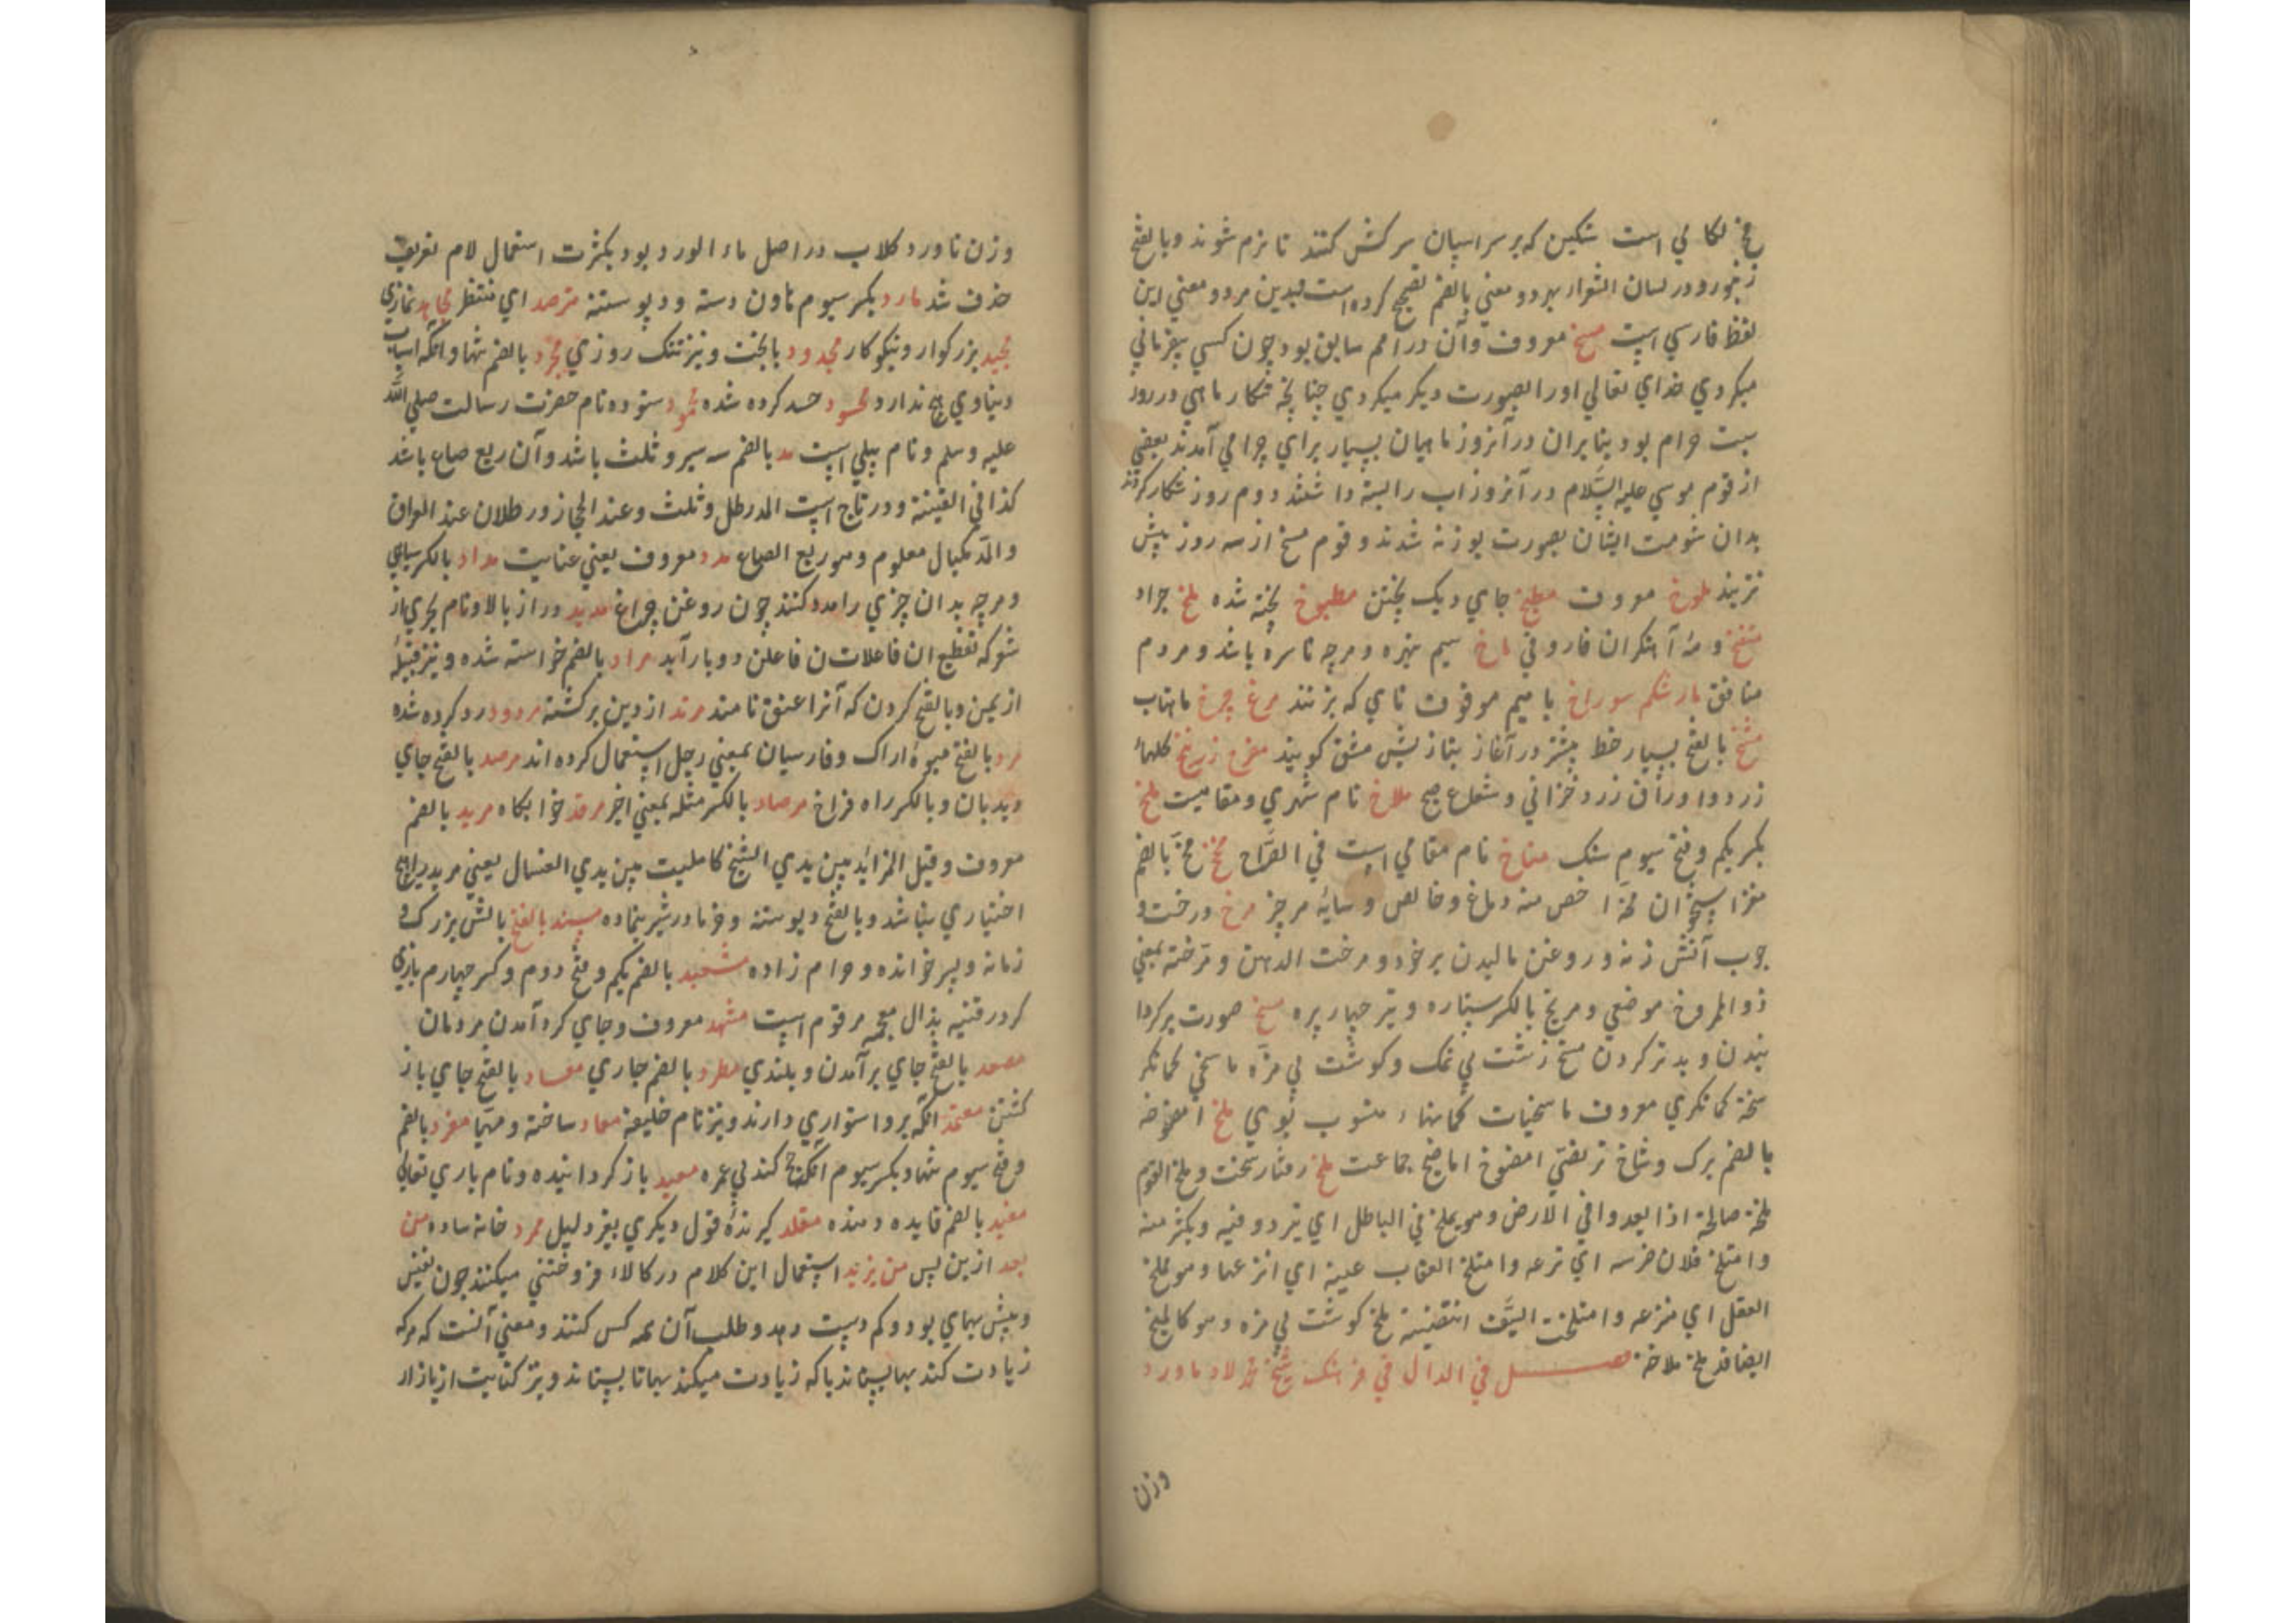 مخ لکامی است سنکین که بر سر اسپان سرکش کنند تا نرم شوند و بالفتح
زنبور و در لسان الشعرا بهر دو معنی بالضم تصحیح کرده است بدین هر دو معنی این
لفظ فارسی است مسخ معروف و آن در امم سابق بود چون کسی بیفرمانی
میکردی خدای تعالی او را بصورت دیکر میکردی چنانچه شکار ماهی در روز
سبت حرام بود بنابران در آنروز ماهیان بسیار برای چرا می آمدند بعضی
از قوم موسی علیه السلام در آنروز اب را بسته داشتند دوم روز شکار کردند
بدان شومت ایشان بصورت بوزنه شدند و قوم مسخ از سه روز بیش
نزیند ملوخ معروف مطبخ جای دیک پختن مطبوخ پخته شده ملخ جراد
منفخ و مه آهنکران فارو فی ماخ سیم نبهره و هرچه ناسره باشد و مردم
منافق مار شکم سوراخ با میم موقوف نای که بزنند مرغ چرخ ماهتاب
مشخ بالفتح بسیار خط بیشتر در آغاز بتازیش مشق کویند مخ زرنخ کلهاء
زرد و اوراق زرد خزانی و شعاع صبح ملاخ نام شهری و مقامیست ملخ
بکسر یکم و فتح سیوم سنک مناخ نام مقامی است فی الصراح مخخ مخ بالضم
مغز استخوان مخة اخص منه دماغ و خالص و سایه هر چیز مرخ درخت و
چوب آتش زنه و روغن مالیدن بر خود و مرخت الدهن و مرخته بمعنی
ذو المروخ موضعی و مریخ بالکسر ستاره و تیر چهار پره مسخ صورت برکردا
نیدن و بدتر کردن مسخ زشت بی نمک و کوشت بی مزه ماسخی کمانکر
سخة کمانکری معروف ماسخیات کمانهاء منسوب بوی ملخ امضوخه
بالضم برک و شاخ تر بضتی امضوخ اماضیخ جماعت ملخ رفتار سخت و ملخ القوم
ملخة صالحة اذا ابعدوا فی الارض و هو یملخ فی الباطل ای یتردد فیه و یکثر منه
و امتلخ فلان ضرسه ای نزعه و امتلخ العقاب عینه ای انتزعها و هو ممتلخ
العقل ای منتزعه و امتلخت السیف انتضیته ملخ کوشت بی مزه و هو کالملیخ
ایضا قد ملخ ملاخة فصل فی الدال فی فرهنک شیخ محمد لاد ماورد
وزن
وزن ناورد کلاب در اصل ماء الورد بود بکثرت استعمال لام تعریف
حذف شد مارد بکسر سیوم هاون دسته و دیو ستنبه مترصد ای منتظر مجاهد غازی
مجید بزرکوار و نیکوکار مجدود بابخت و نیز تنک روزی مجرد بالضم تنها و آنکه اسباب
دنیاوی هیچ ندارد محسود حسد کرده شده محمود ستوده نام حضرت رسالت صلی الله
علیه وسلم و نام پیلی است مد بالضم سه سیر و ثلث باشد و آن ربع صاع باشد
کذا فی القنیة و در تاج است المد رطل و ثلث و عند الحجاز و رطلان عند العراق
و المد مکیال معلوم و هو ربع الصاع مدد معروف یعنی عنایت مداد بالکسر سیاهی
و هرچه بدان چیزی را مدد کنند چون روغن چراغ مدید دراز بالا و نام بحری از
شعر که تقطیع ان فاعلاتن فاعلن دو بار آید مراد بالضم خواسته شده و نیز قبیلهٔ
از یمن و بالفتح کردن که آنرا عنق نامند مرتد از دین برکشته مردود رد کرده شده
مرد بالفتح میوهٔ اراک و فارسیان بمعنی رجل استعمال کرده اند مرصد بالفتح جای
دیدبان و بالکسر راه فراخ مرصاد بالکسر مثله بمعنی اخیر مرقد خوابکاه مرید بالضم
معروف و قیل المرید بین یدی الشیخ کالمیت بین یدی الغسال یعنی مرید را هیچ
اختیاری نباشد و بالفتح دیو ستنبه و خرما در شیر نهاده مسند بالفتح بالش بزرک و
زمانه و پسر خوانده و حرام زاده مشعبد بالضم یکم و فتح دوم و کسر چهارم بازی
کر در قنیه بذال معجمه مرقوم است مشهد معروف و جای کرد آمدن مردمان
مصعد بالفتح جای برآمدن و بلندی مطرد بالضم جاری معاد بالفتح جای باز
کشتن معتمد آنکه برو استواری دارند و نیز نام خلیفه معاد ساخته و مهیا مفرد بالضم
و فتح سیوم تنها و بکسر سیوم آنکه حج کند بی عمره معید باز کردانیده و نام باری تعالی
مفید بالضم فایده دهنده مقلد کیرندهٔ قول دیکری بغیر دلیل ممرد خانه ساده من
بعد ازین پس من یزید استعمال این کلام در کالاء فروختنی میکنند چون نفیس
و بیش بهای بود و کم دست دهد و طلب آن همه کس کنند و معنی آنست که هر که
زیادت کند بها بستاند یا که زیادت میکند بها تا بستاند و نیز کنایت از بازار